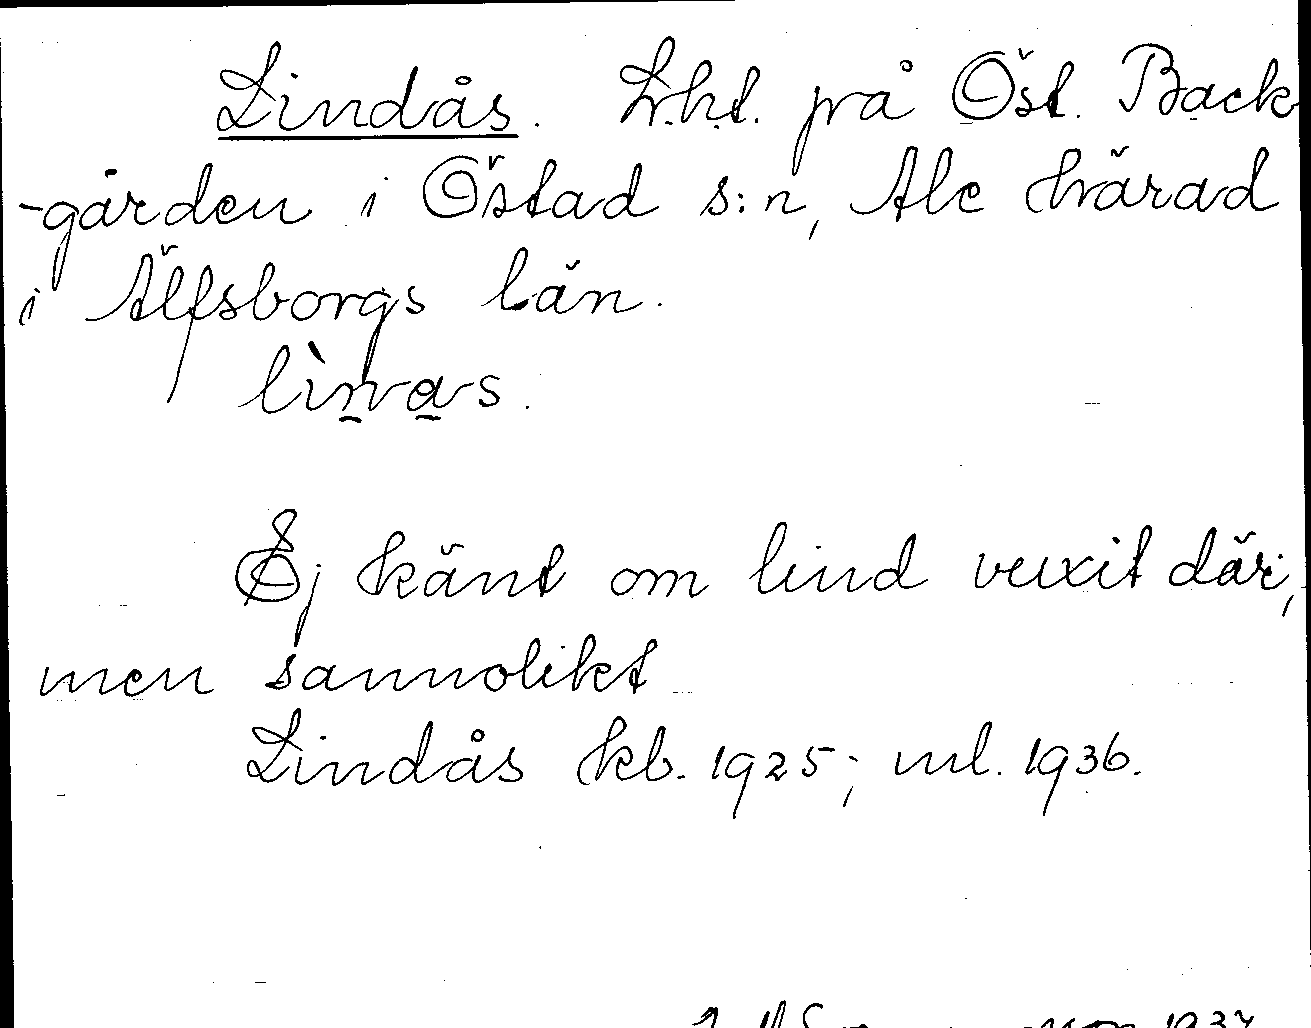 Lindås. Lht. på Öst. Back
-gården i Östad s:n, Ale härad
i Älfsborgs län.
lìnas.
Ej känt om lind vuxit där,
men sannolikt
Lindås kb. 1925; ml. 1936.
1937